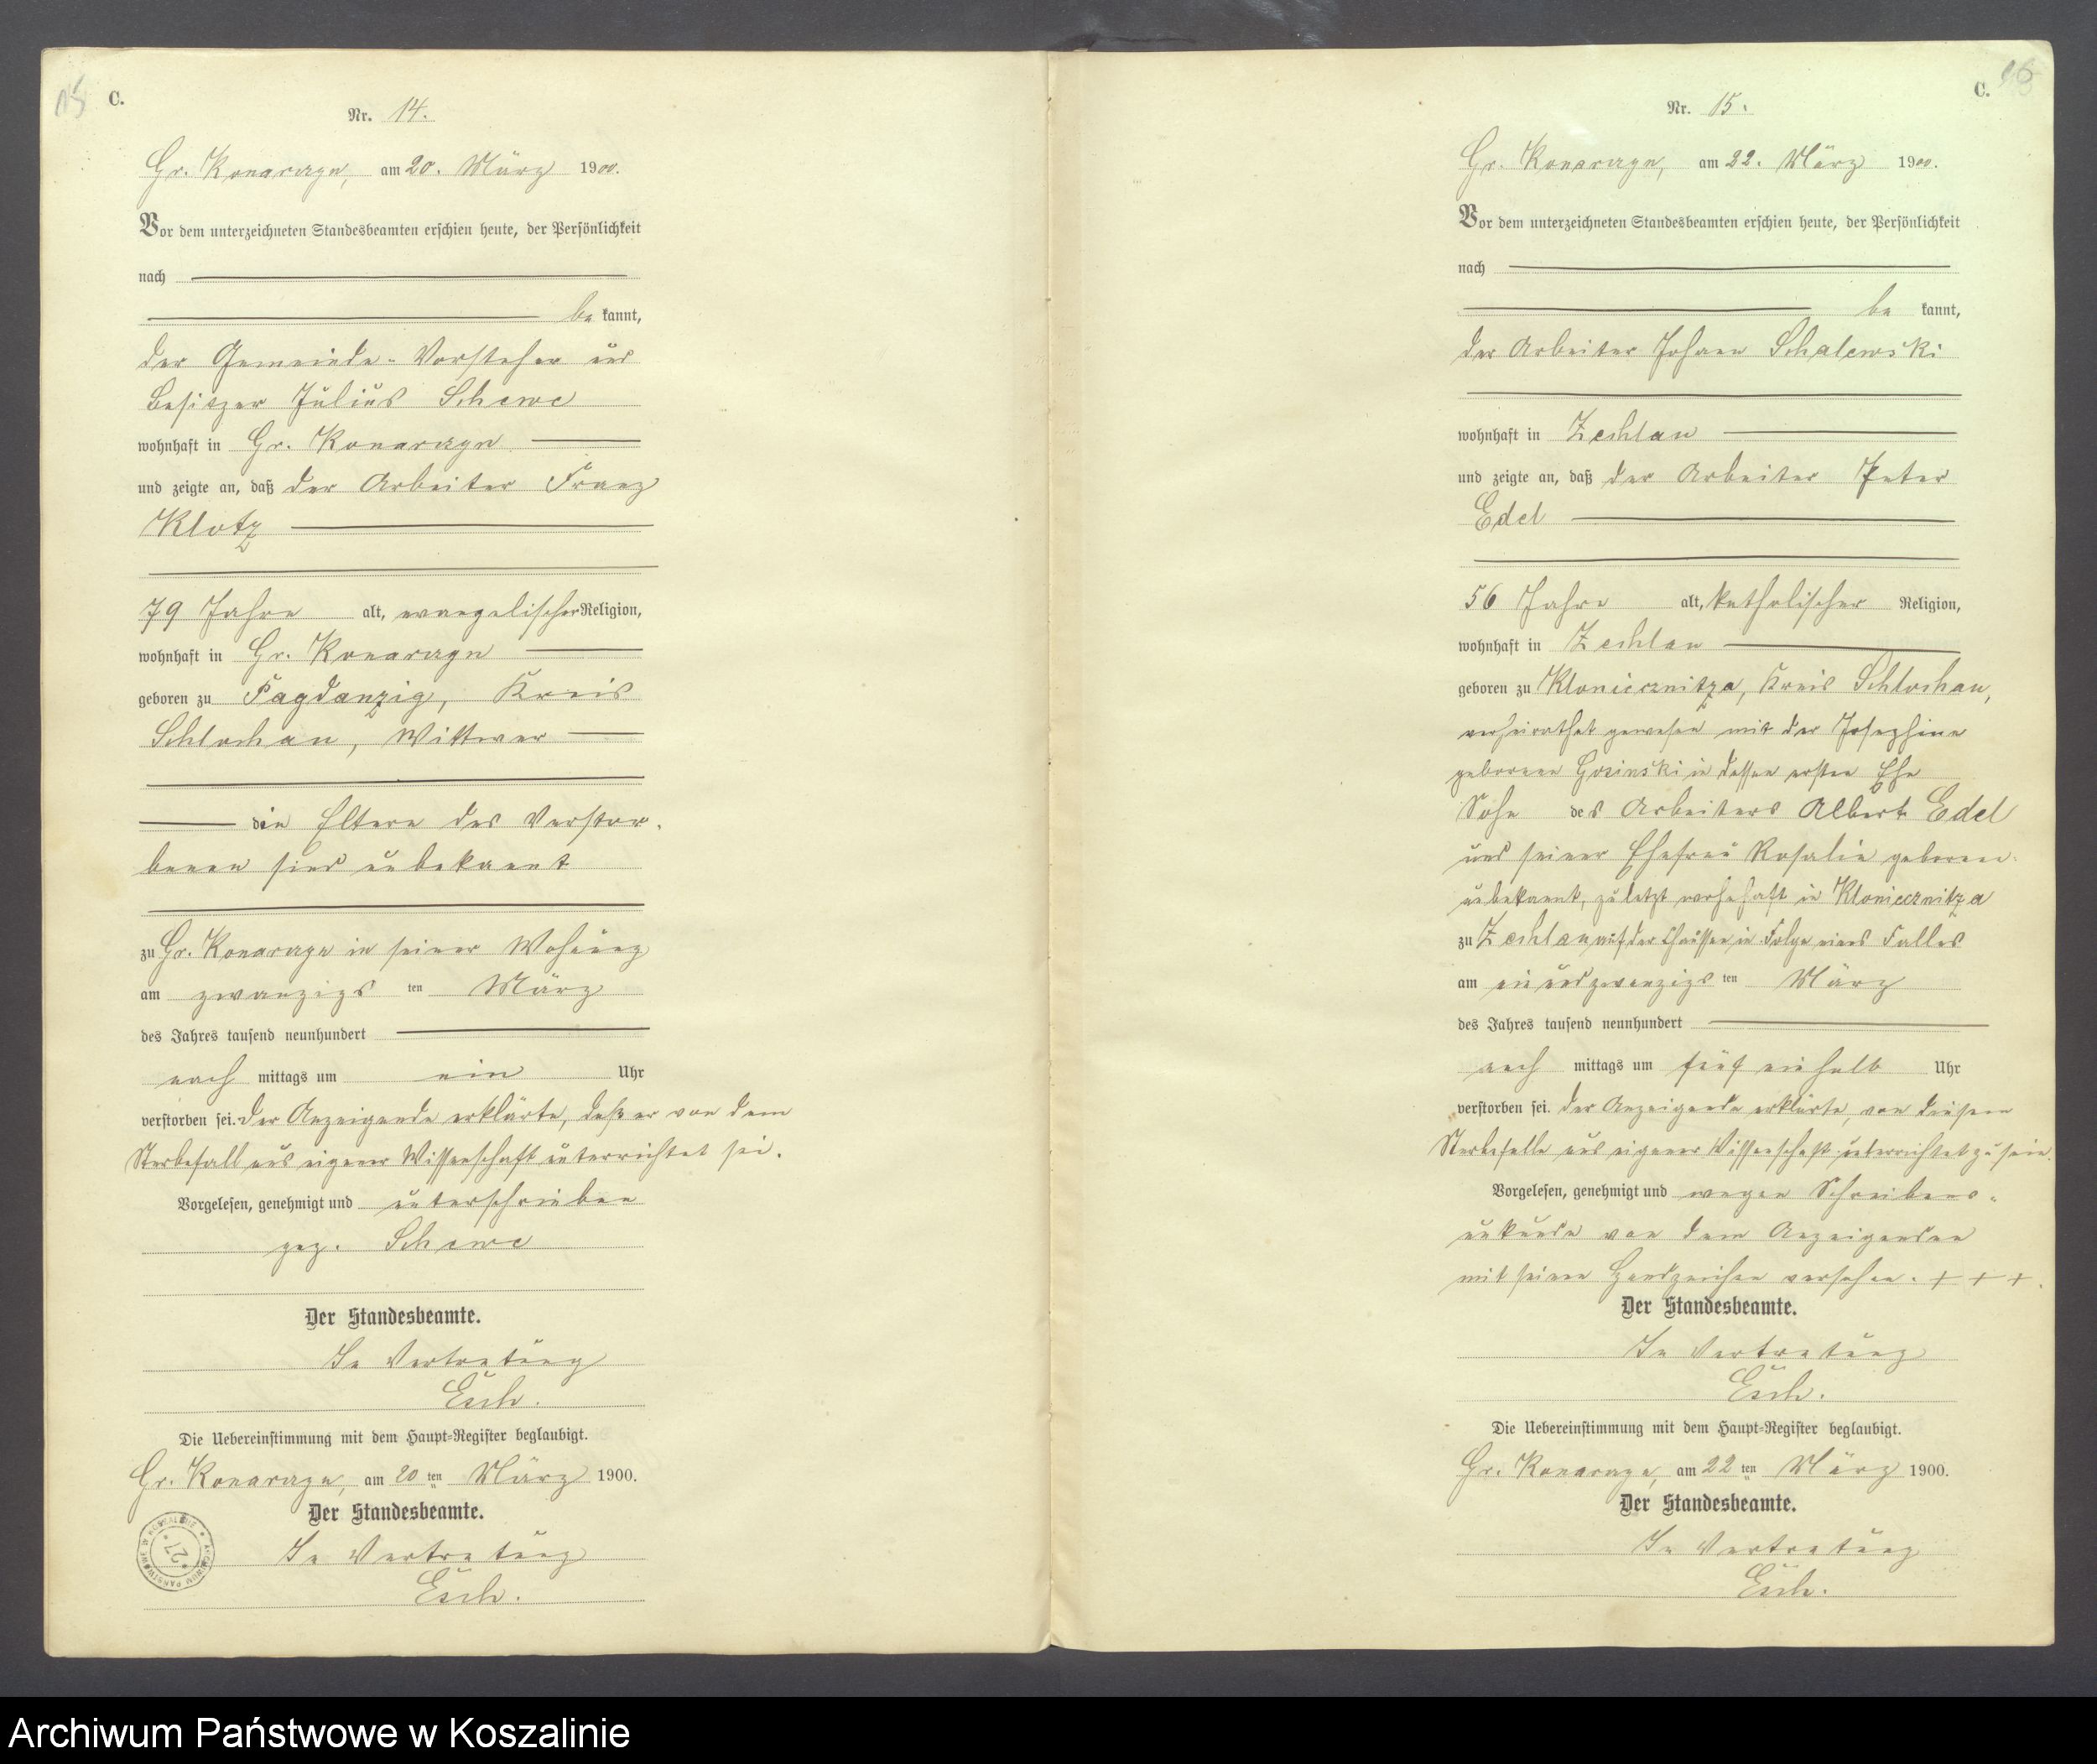 15
C.
Nr. 14.
Gr. Konarzyn, am 20. März 1900.
Vor dem unterzeichneten Standesbeamten erschien heute, der Persönlichkeit
nach
be kannt,
der Gemeinde-Vorsteher und
Besitzer Julius Schewe
wohnhaft in Gr. Konarzyn
und zeigte an, daß der Arbeiter Franz
Klotz
79 Jahre alt, evangelischer Religion,
wohnhaft in Gr. Konarzyn
geboren zu Pagdanzig, Kreis
Schlochau, Wittwer
die Eltern des Verstor-
benen sind unbekannt
zu Gr. Konarzyn in seiner Wohnung
am zwanzigs ten März
des Jahres tausend neunhundert
nach mittags um ein Uhr
verstorben sei. Der Anzeigende erklärte, daß er von dem
Sterbefall aus eigener Wissenschaft unterrichtet sei.
Vorgelesen, genehmigt und unterschrieben
gez. Schewe
Der Standesbeamte.
In Vertretung
Esch.
Die Uebereinstimmung mit dem Haupt-Register beglaubigt.
Gr. Konarzyn, am 20 ten März 1900.
Der Standesbeamte.
In Vertretung
Esch.
ARCHIWUM PAŃSTWOWE W KOSZALINIE * 27 *
16
C.
Nr. 15.
Gr. Konarzyn, am 22. März 1900.
Vor dem unterzeichneten Standesbeamten erschien heute, der Persönlichkeit
nach
be kannt,
der Arbeiter Johann Schalewski
wohnhaft in Zechlau
und zeigte an, daß der Arbeiter Peter
Edel
56 Jahre alt, katholischer Religion,
wohnhaft in Zechlau
geboren zu Kloniecznitza, Kreis Schlochau,
verheirathet gewesen mit der Josephine
geborenen Gosinski in dessen ersten Ehe
Sohn des Arbeiters Albert Edel
und seiner Ehefrau Rosalie geboren-
unbekannt, zuletzt wohnhaft in Kloniecznitza
zu Zechlau auf der Chaussee in Folge eines Falles
am einundzwanzigs ten März
des Jahres tausend neunhundert
nach mittags um fünf einhalb Uhr
verstorben sei. Der Anzeigende erklärte, von diesem
Sterbefalle aus eigener Wissenschaft unterrichtet zu sein.
Vorgelesen, genehmigt und wegen Schreibens-
unkunde von dem Anzeigenden
mit seinen Handzeichen versehen. + + +.
Der Standesbeamte.
In Vertretung
Esch.
Die Uebereinstimmung mit dem Haupt-Register beglaubigt.
Gr. Konarzyn, am 22 ten März 1900.
Der Standesbeamte.
In Vertretung
Esch.
Archiwum Państwowe w Koszalinie